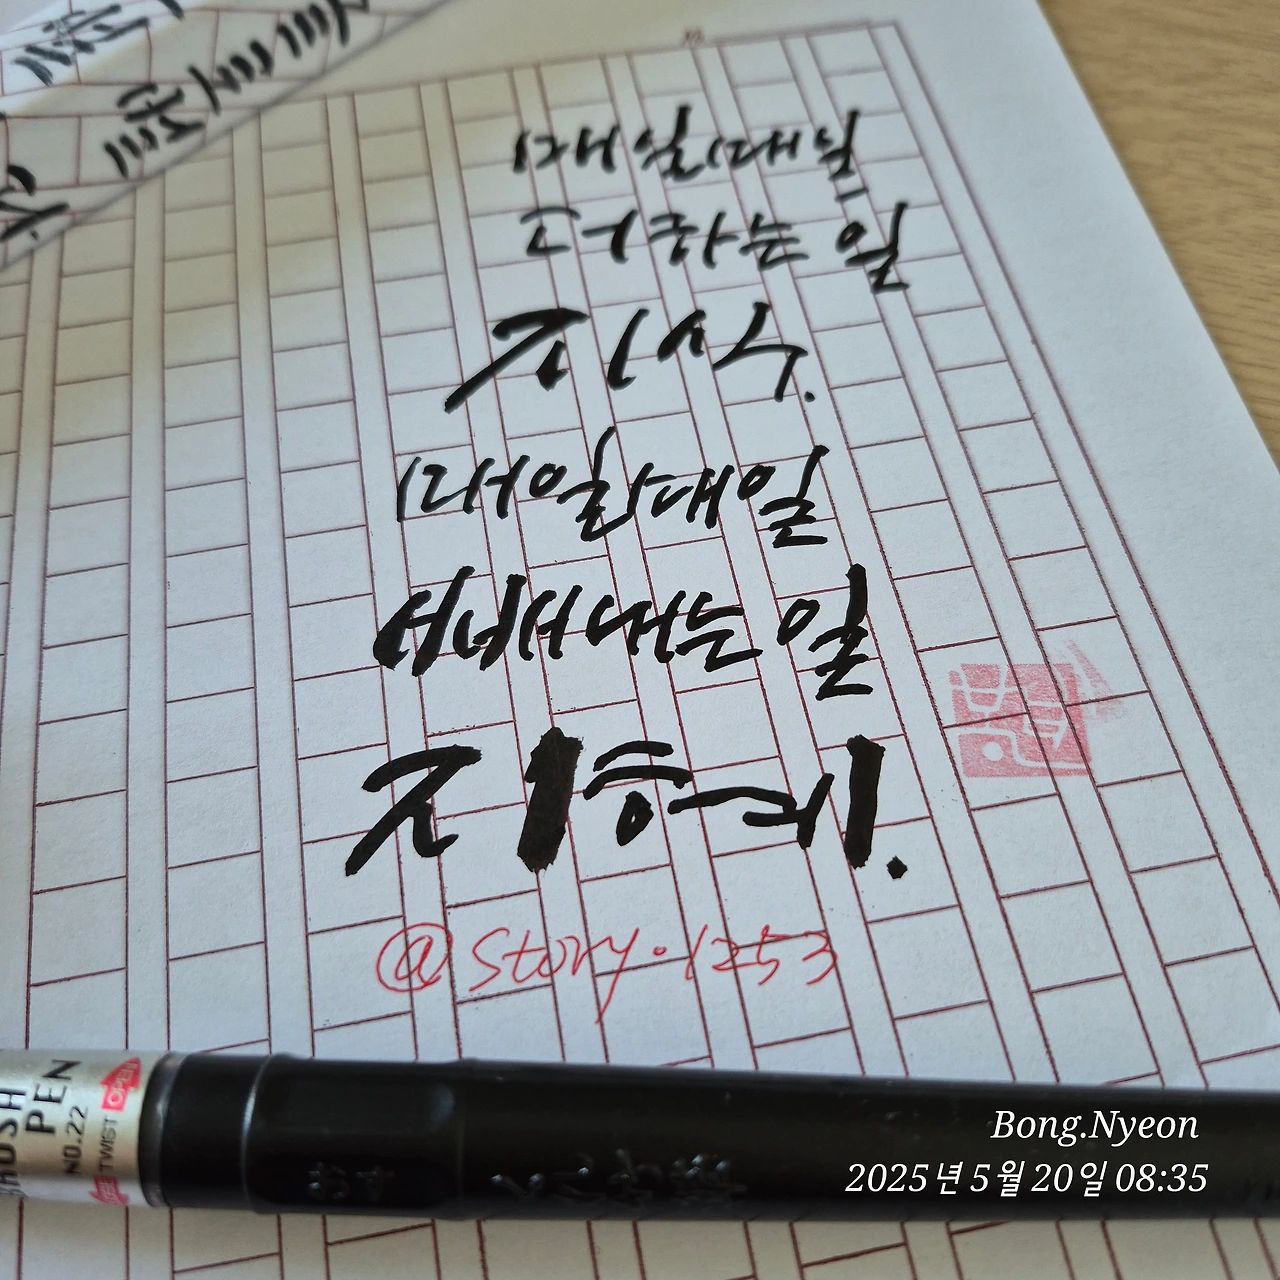 매일매일
더하는 일
지식.
매일매일
빼내는 일
지혜.
@story.1253
PEN
NO.22
TWIST
OPEN
Bong.Nyeon
2025년 5월 20일 08:35